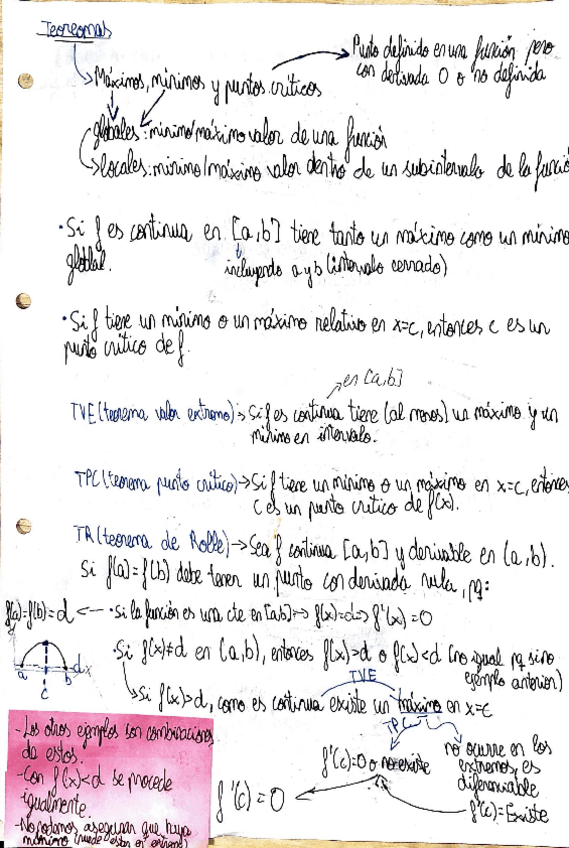 Teoremas
Máximos, mínimos y puntos críticos
Punto definido en una función pero
con derivada 0 o no definida
globales: mínimo/máximo valor de una función
locales: mínimo/máximo valor dentro de un subintervalo de la función
· Si f es continua en [a,b] tiene tanto un máximo como un mínimo
global.
incluyendo a y b (intervalo cerrado)
· Si f tiene un mínimo o un máximo relativo en x=c, entonces c es un
punto crítico de f.
en [a,b]
TVE (teorema valor extremo) → Si f es continua tiene (al menos) un máximo y un
mínimo en intervalo.
TPC (teorema punto crítico) → Si f tiene un mínimo o un máximo en x=c, entonces
c es un punto crítico de f(x).
TR (teorema de Rolle) → Sea f continua [a,b] y derivable en (a,b).
Si f(a)=f(b) debe tener un punto con derivada nula, pq:
f(a)=f(b)=d ← · Si la función es una cte en [a,b] → f(x)=d ⇒ f'(x)=0
· Si f(x)≠d en (a,b), entonces f(x)>d o f(x)<d (no igual pq sino
ejemplo anterior)
d x
a b
c
TVE
Si f(x)>d, como es continua existe un máximo en x=c
f'(c)=0 o no existe
no ocurre en los
extremos, es
diferenciable
f'(c)=Existe
f'(c)=0
- Los otros ejemplos son combinaciones
de estos.
- Con f(x)<d se procede
igualmente.
- No podemos asegurar que haya
mínimo (puede estar en extremo)